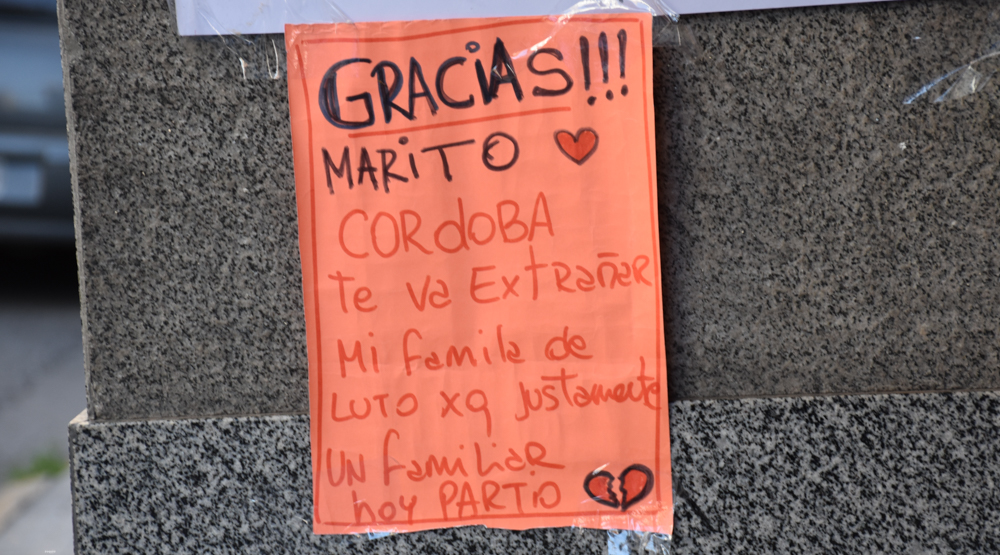 GRACiAS!!!
MARiTO
CORdOBA
Te va ExtRañaR
Mi famile de
LUTO xq justamente
UN familiaR
hoy PARTiO